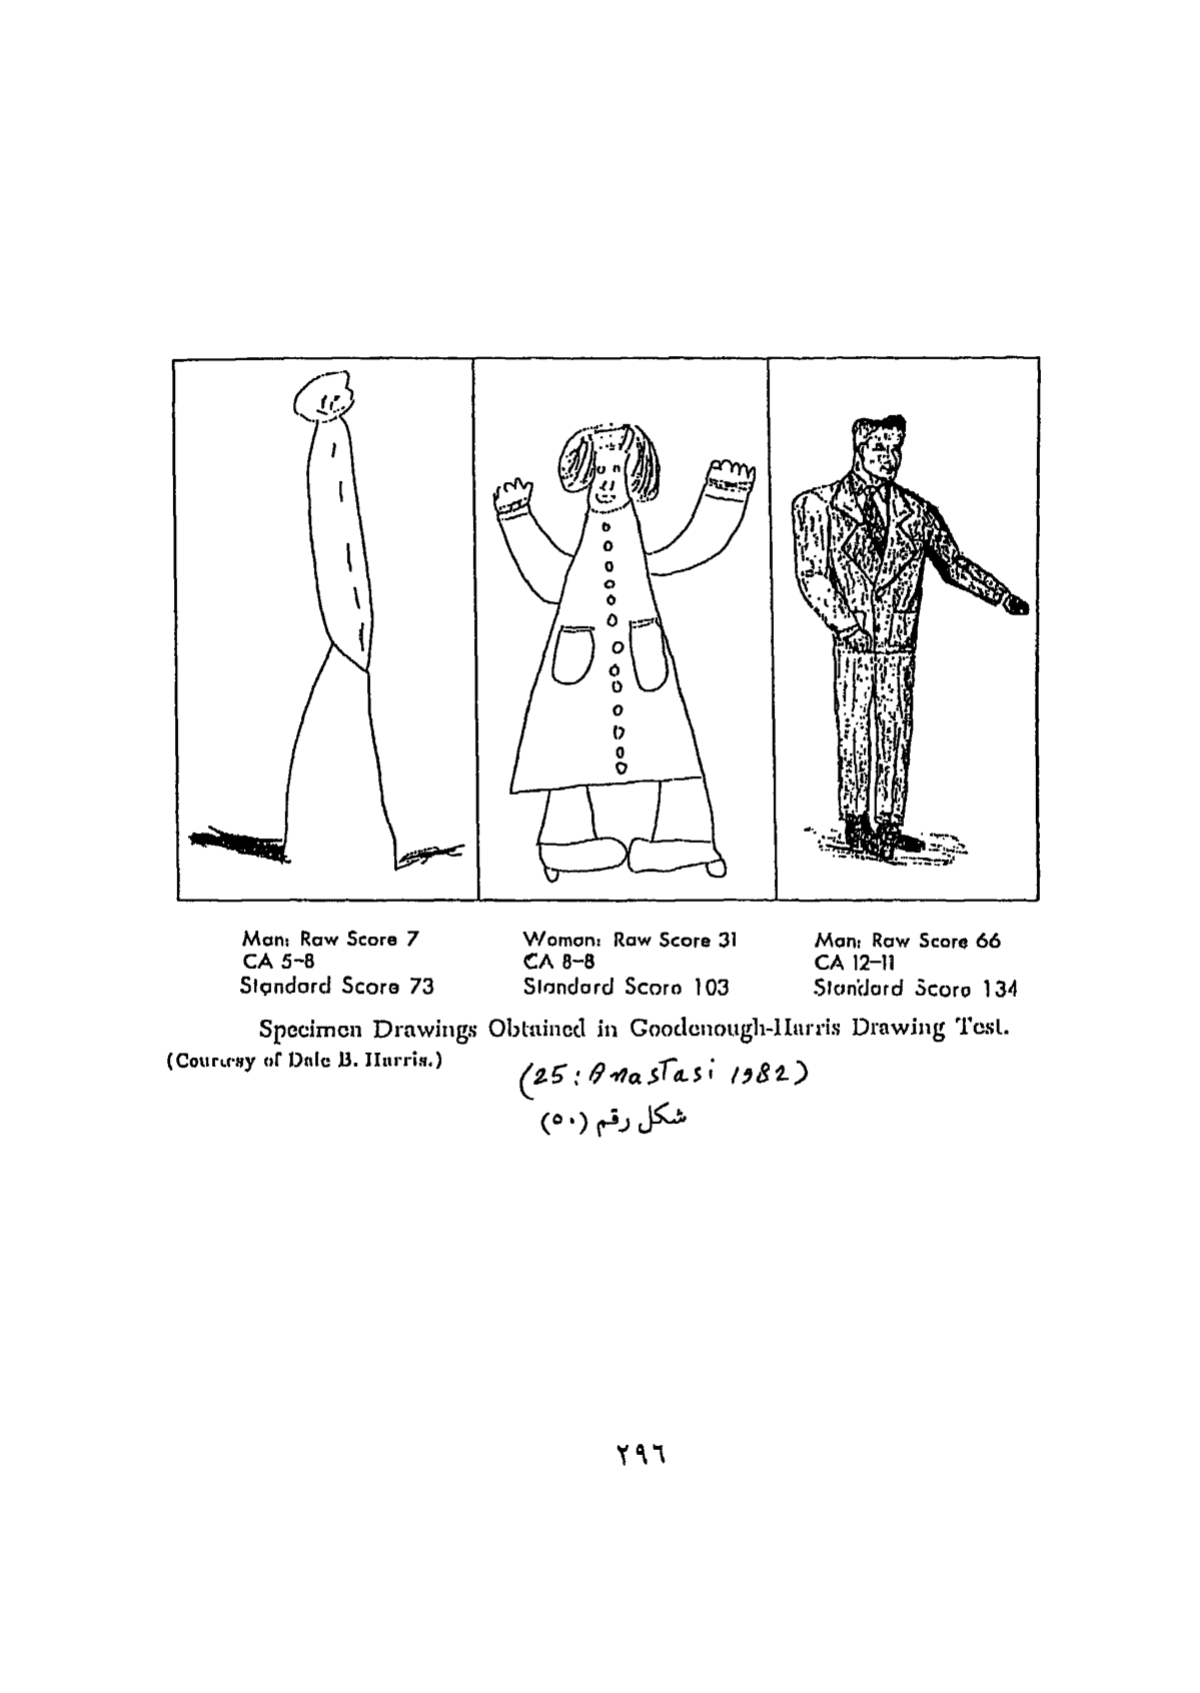 Man: Raw Score 7
CA 5-8
Standard Score 73
Woman: Raw Score 31
CA 8-8
Standard Score 103
Man: Raw Score 66
CA 12-11
Standard Score 134
Specimen Drawings Obtained in Goodenough-Harris Drawing Test.
(Courtesy of Dale B. Harris.)
(25: Anastasi 1982)
شكل رقم (٥٠)
٢٩٦